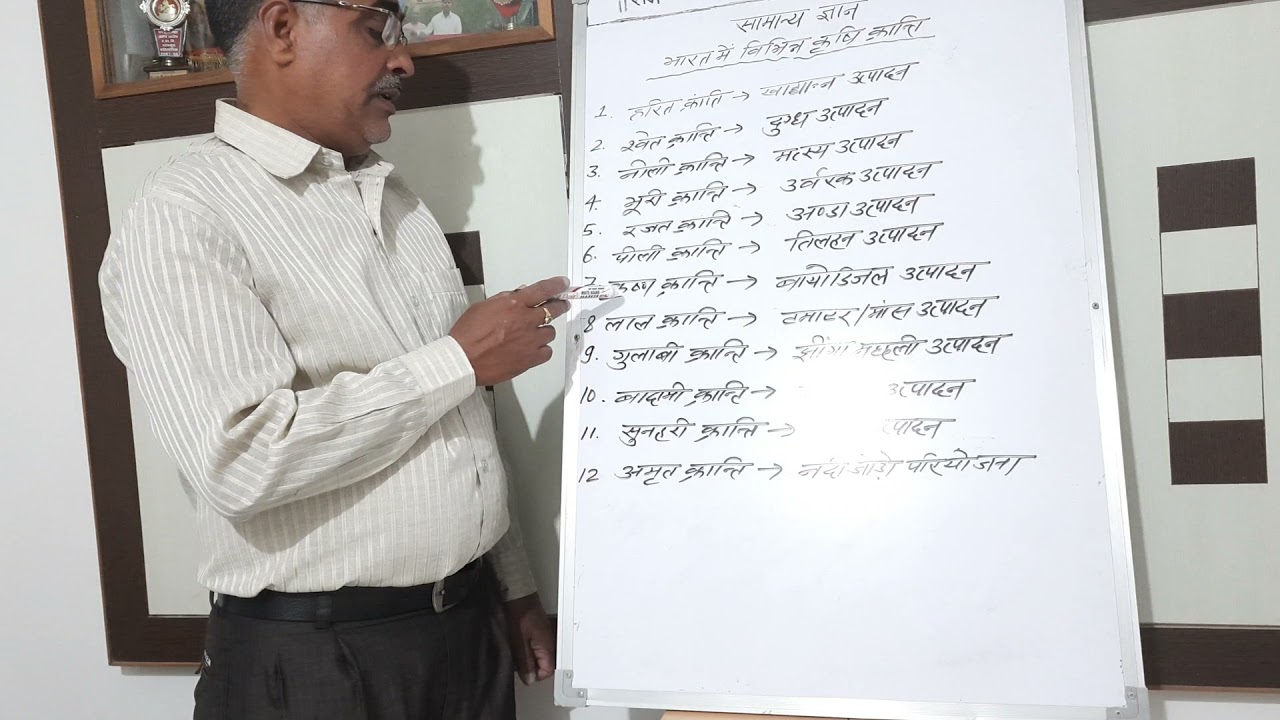 सामान्य ज्ञान
भारत में विभिन्न कृषि क्रान्ति
1. हरित क्रांति → खाद्यान्न उत्पादन
2. श्वेत क्रान्ति → दुग्ध उत्पादन
3. नीली क्रान्ति → मत्स्य उत्पादन
4. भूरी क्रान्ति → उर्वरक उत्पादन
5. रजत क्रान्ति → अण्डा उत्पादन
6. पीली क्रान्ति → तिलहन उत्पादन
7. कृष्ण क्रान्ति → बायोडिजल उत्पादन
8 लाल क्रान्ति → टमाटर/मांस उत्पादन
9. गुलाबी क्रान्ति → झींगा मछली उत्पादन
10. बादामी क्रान्ति → उत्पादन
11. सुनहरी क्रान्ति →
12 अमृत क्रान्ति → नदी जोड़ो परियोजना